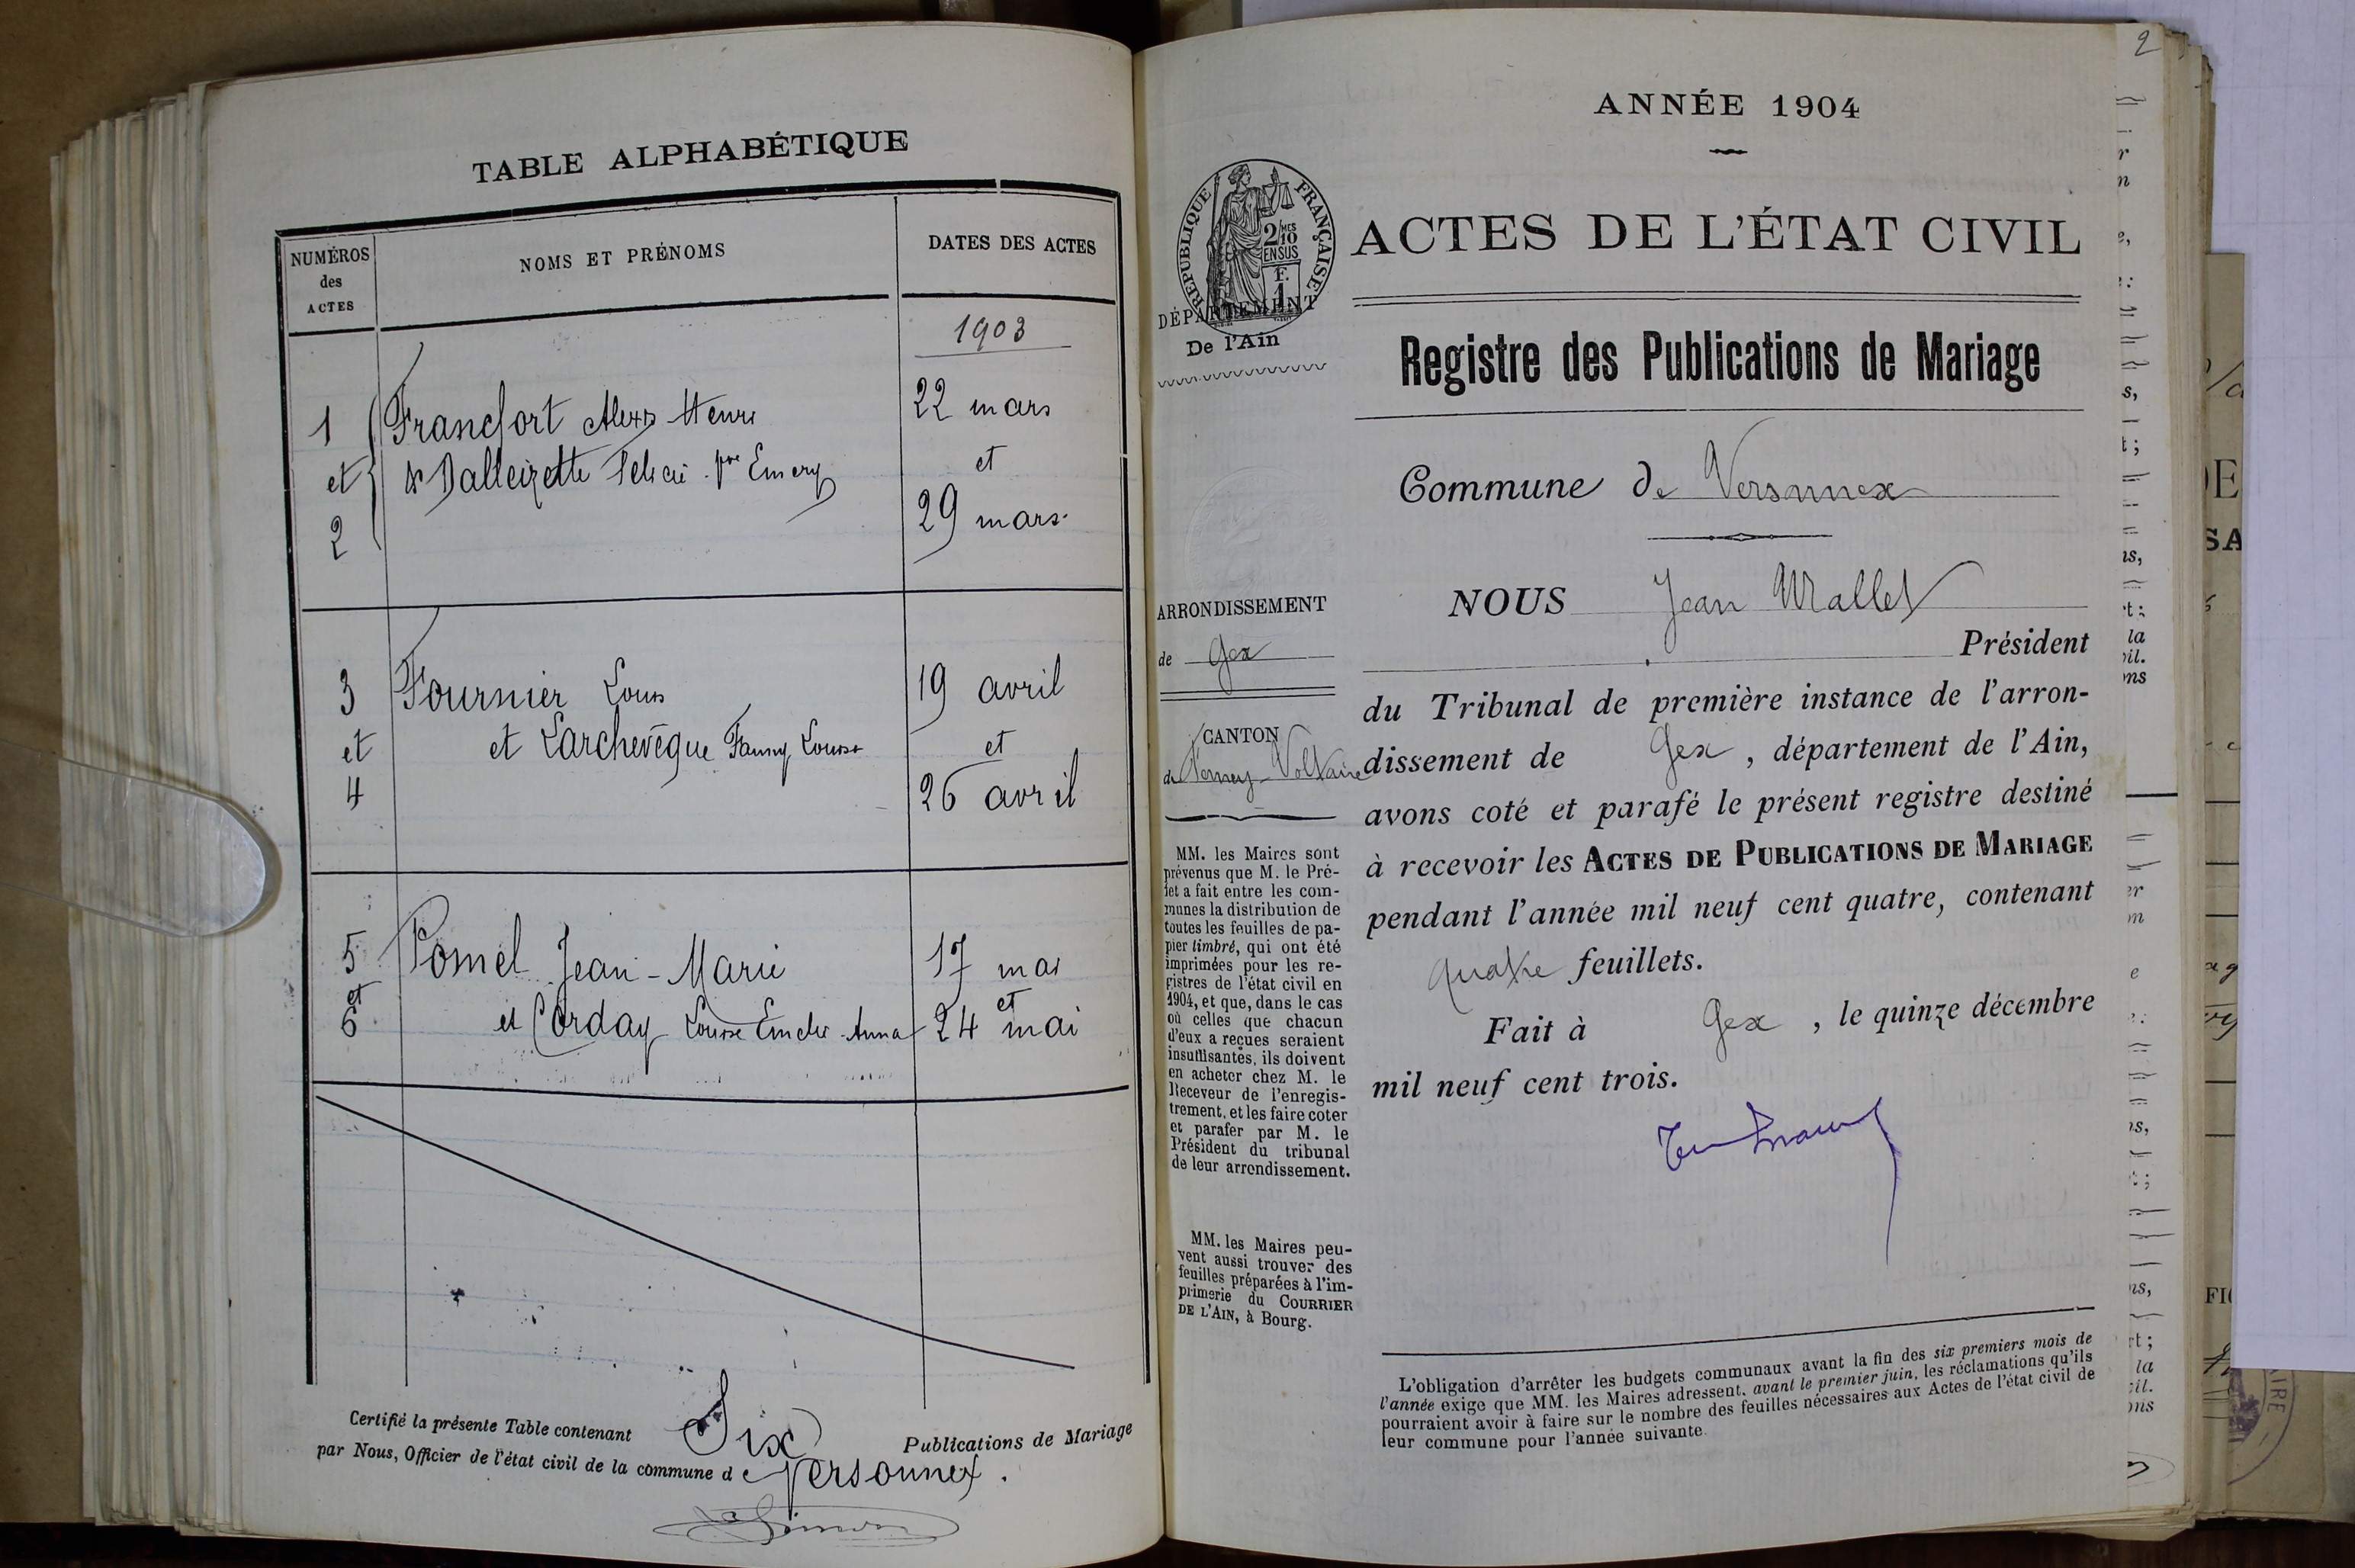 TABLE ALPHABÉTIQUE
NUMÉROS
des
ACTES
NOMS ET PRÉNOMS
DATES DES ACTES
1903
1
et
2
Francfort Alexis Henri
& Dalleizette Felicie Vve Emery
22 mars
et
29 mars
3
et
4
Fournier Louis
et Larchevêque Fanny Louise
19 avril
et
26 avril
5
et
6
Pomel Jean-Marie
et Corday Louise Emelie Anna
17 mai
et
24 mai
Certifié la présente Table contenant Six Publications de Mariage
par Nous, Officier de l'état civil de la commune de Versonnex.
2
ANNÉE 1904
RÉPUBLIQUE FRANÇAISE
2/10MES
EN SUS
F.
1
DÉPARTEMENT
De l'Ain
ARRONDISSEMENT
de Gex
CANTON
de Ferney-Voltaire
MM. les Maires sont
prévenus que M. le Pré-
fet a fait entre les com-
munes la distribution de
toutes les feuilles de pa-
pier timbré, qui ont été
imprimées pour les re-
gistres de l'état civil en
1904, et que, dans le cas
où celles que chacun
d'eux a reçues seraient
insuffisantes, ils doivent
en acheter chez M. le
Receveur de l'enregis-
trement, et les faire coter
et parafer par M. le
Président du tribunal
de leur arrondissement.
MM. les Maires peu-
vent aussi trouver des
feuilles préparées à l'im-
primerie du COURRIER
DE L'AIN, à Bourg.
ACTES DE L'ÉTAT CIVIL
Registre des Publications de Mariage
Commune de Versonnex
NOUS Jean Mallet
Président
du Tribunal de première instance de l'arron-
dissement de Gex, département de l'Ain,
avons coté et parafé le présent registre destiné
à recevoir les ACTES DE PUBLICATIONS DE MARIAGE
pendant l'année mil neuf cent quatre, contenant
quatre feuillets.
Fait à Gex, le quinze décembre
mil neuf cent trois.
L'obligation d'arrêter les budgets communaux avant la fin des six premiers mois de
l'année exige que MM. les Maires adressent, avant le premier juin, les réclamations qu'ils
pourraient avoir à faire sur le nombre des feuilles nécessaires aux Actes de l'état civil de
leur commune pour l'année suivante.